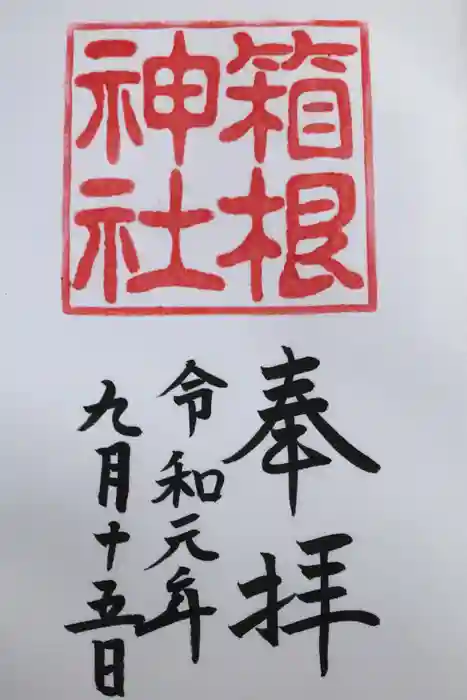 箱根
神社
奉拝
令和元年
九月十五日